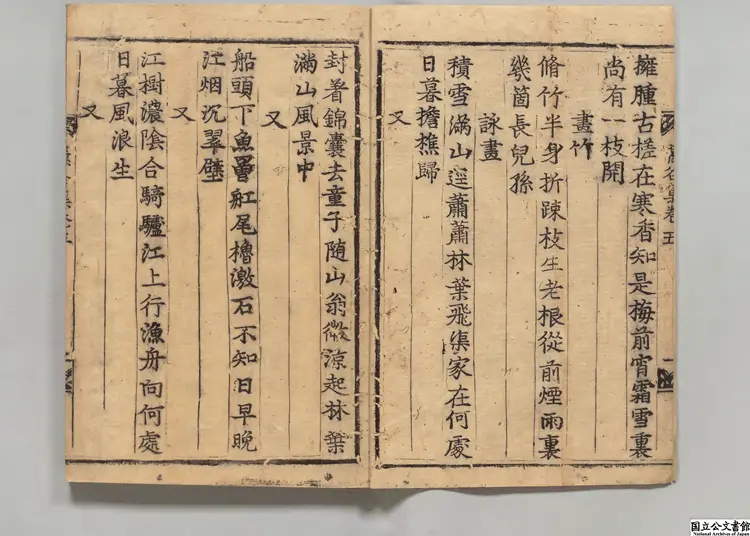 擁腫古槎在寒香知是梅前宵霜雪裏
尚有一枝開
畫竹
脩竹半身折踈枝生老根從前煙雨裏
幾箇長兒孫
詠畫
積雪滿山逕蕭蕭林葉飛渠家在何處
日暮擔樵歸
又
封着錦囊去童子随山翁微涼起林葉
滿山風景中
又
船頭下魚罾舡尾櫓激石不知日早晚
江烟沉翠壁
又
江樹濃陰合騎驢江上行漁舟向何處
日暮風浪生
又
国立公文書館
National Archives of Japan